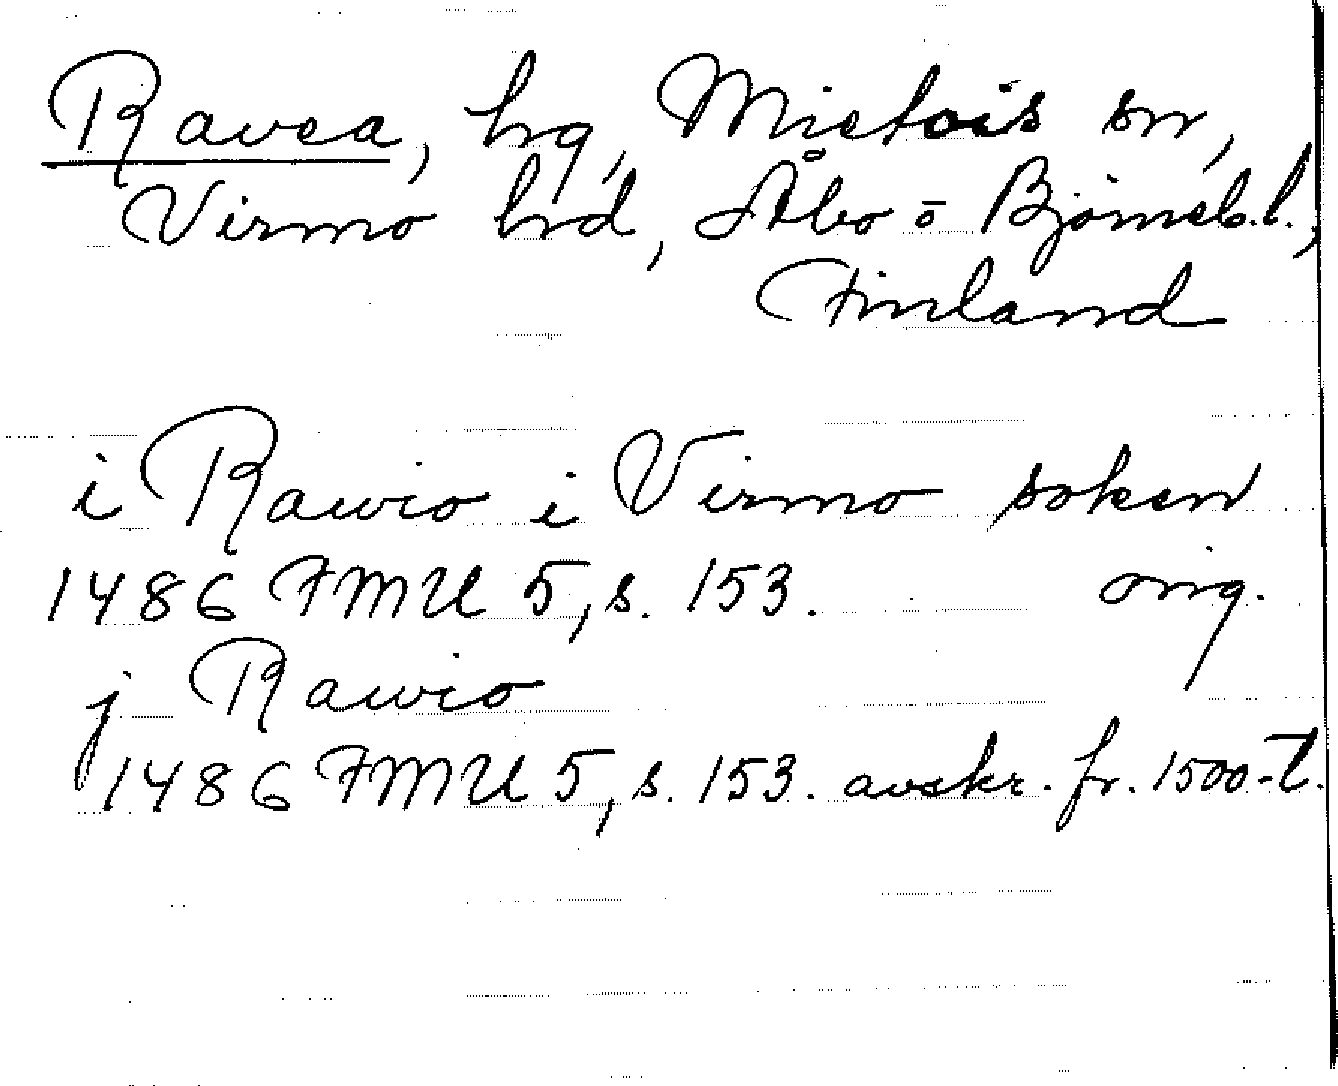 Ravea, hg, Mietois sn,
Virmo hd, Åbo o Björneb.l.,
Finland
i Rawio i Virmo soken
1486 FMU 5, s. 153. orig.
j Rawio
1486 FMU 5, s. 153. avskr. fr. 1500-t.